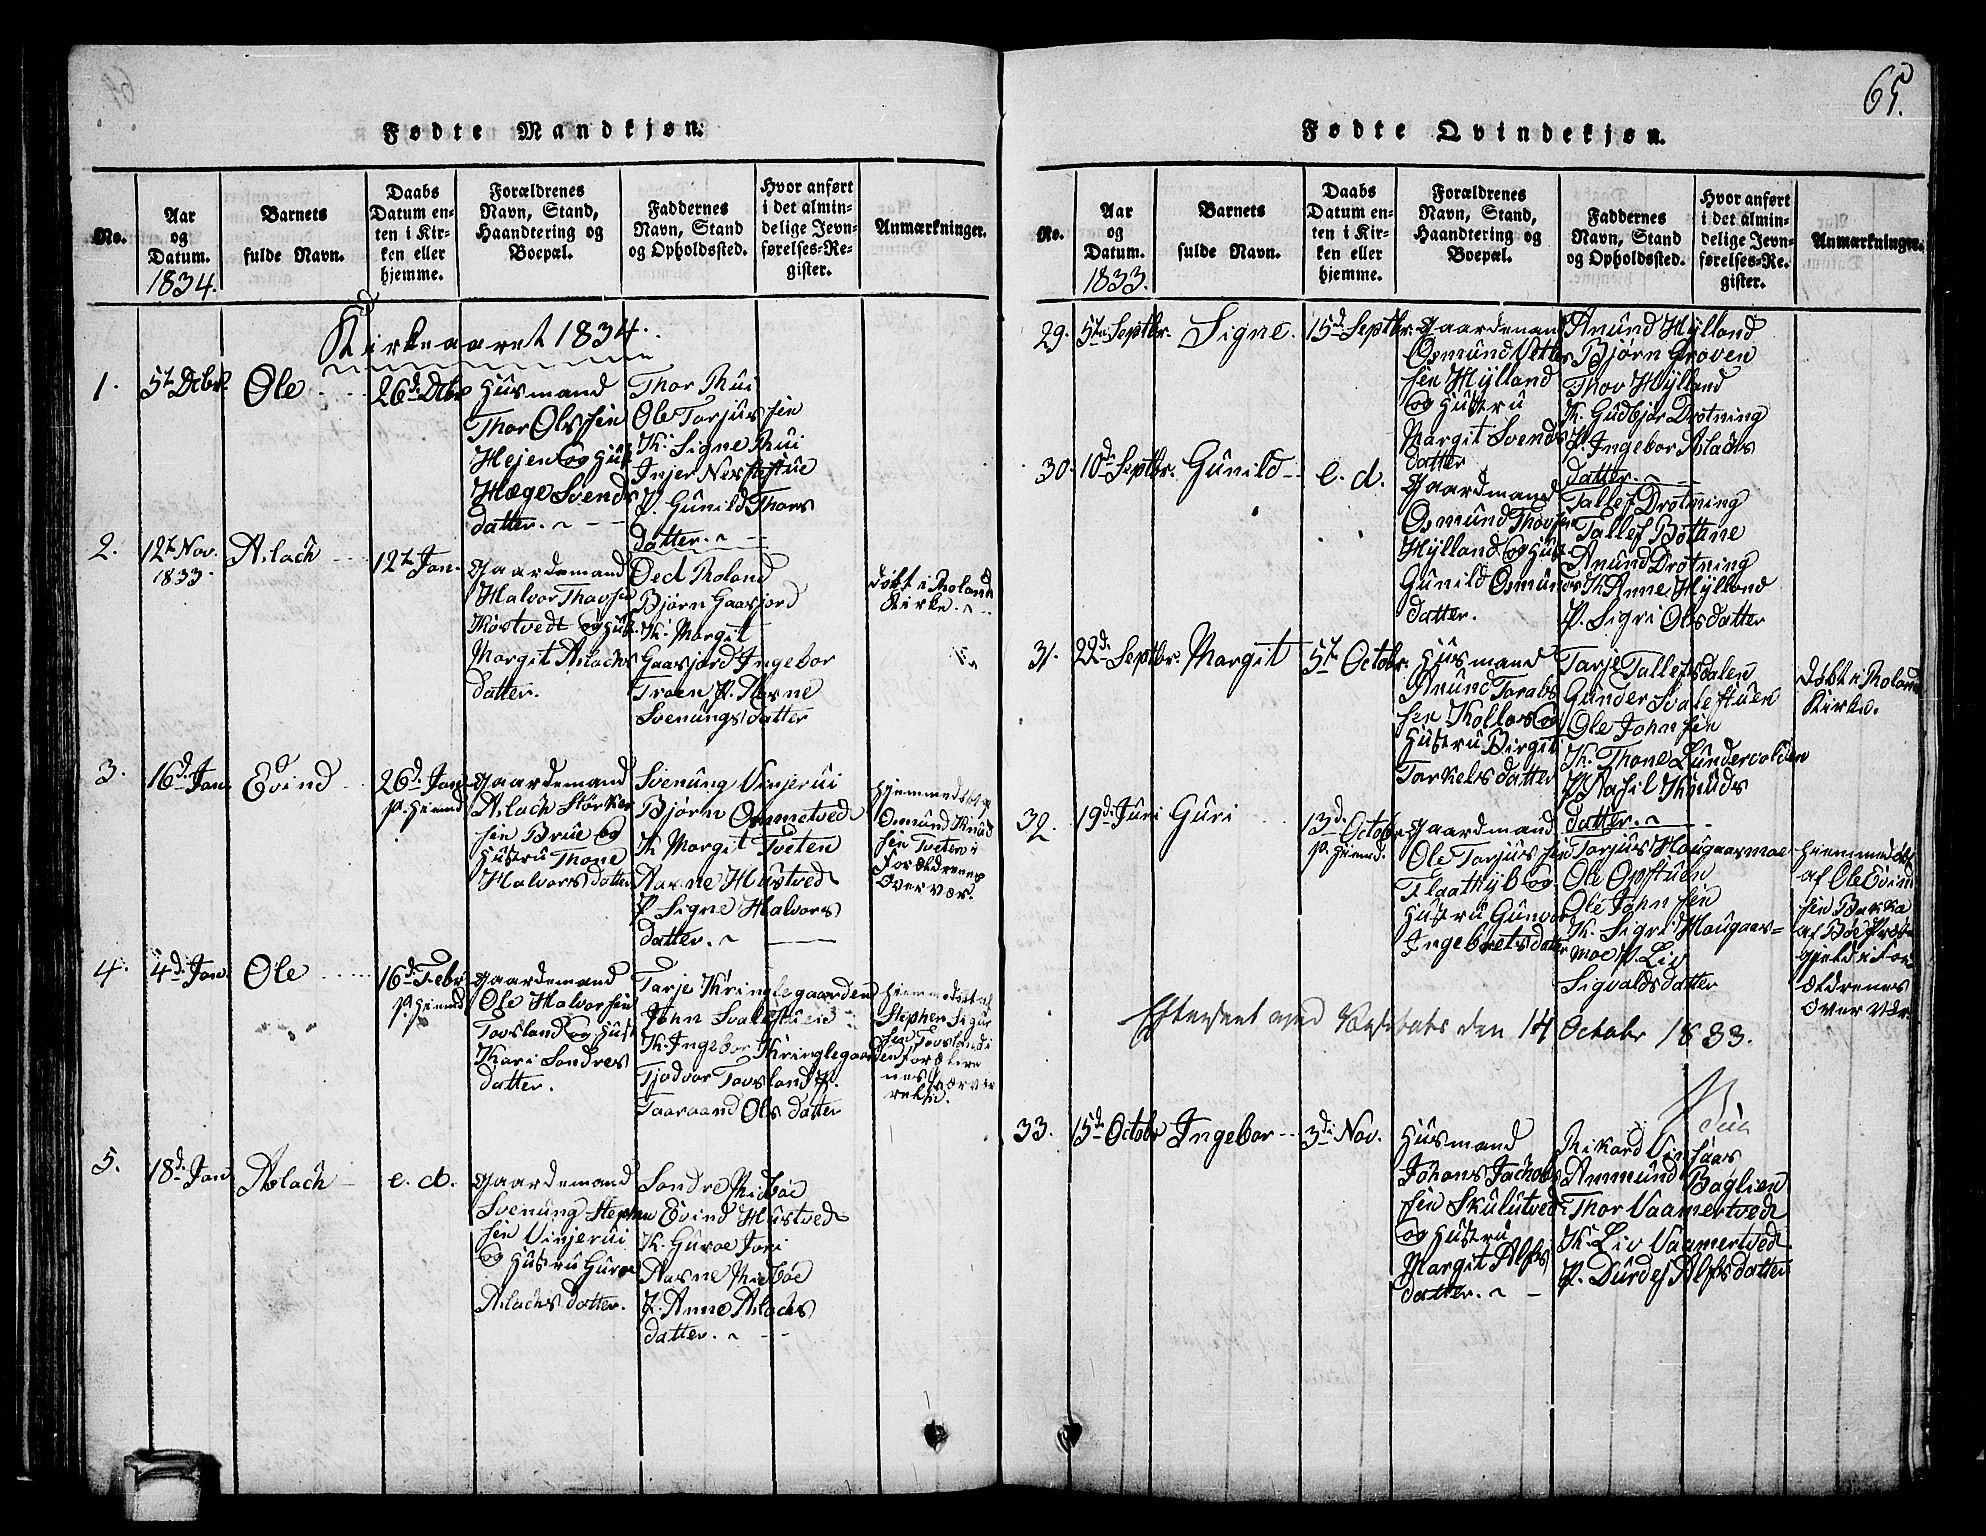 65.
Fødte Mandkjøn.
No.
Aar
og
Datum.
1834.
Barnets
fulde Navn.
Daabs
Datum en-
ten i Kir-
ken eller
hjemme.
Forældrenes
Navn, Stand,
Haandtering og
Boepæl.
Faddernes
Navn, Stand
og Opholdssted.
Hvor anført
i det almin-
delige Jevn-
førelses-Re-
gister.
Anmærkninger.
Kirkeaaret 1834.
1.
5t Debr.
Ole
26d Debr
Husmand
Thor Olssen
Hejen og Hust
Hæge Svends
datter.
Thor Rui
Ole Tarjussen
K. Signe Rui
Injer Nerstestue
P. Gunild Thors
datter.
2.
12t Nov.
1833.
Aslach
12t Jan.
Gaardemand
Halvor Thovsen
Kostvedt og Hust.
Margit Aslachs
datter.
Oed Roland
Bjørn Gaasjord
K. Margit
Gaasjord Ingebor
Troen P. Aasne
Svenungsdatter
Døbt i Roland
Kirke.
3.
16d Jan.
Evind
26d Jan
p. Hiemd
Gaardemand
Aslach Størker
sen Brue og
Hustru Thone
Halvorsdatter
Svenung Vinjerui
Bjørn Ommetved
K Margit Tveten
Aasne Hustved
P Signe Halvors
datter.
Hjemmedøbt af
Osmund Knud
sen Tveten i
Forældrenes
Overvær.
4.
4d Jan.
Ole
16d Febr
p. Hiemd
Gaardemand
Ole Halvorsen
Tovsland og Hust
Kari Sondres
datter.
Tarje Kringlegaarden
John Svalestuen
K. Ingebor Kringlegaarden
Tjodvor Tovsland P.
Taaraand Olsdatter
Hiemmedøbt af
Stephen Sigur
sen Tovsland i
Forældre
nes Overvæ
relse.
5.
18d Jan
Aslach
e. d.
Gaardemand
Svenung Stephen
sen Vinjerui
og Hustru Guroe
Aslachsdatter.
Sondre Midbøe
Evind Hustved
K. Guroe Jori
Aasne Midbøe
P. Anne Aslachs
datter.
Fødte Qvindekjøn.
No.
Aar
og
Datum.
1833.
Barnets
fulde Navn.
Daabs
Datum en-
ten i Kir-
ken eller
hjemme.
Forældrenes
Navn, Stand,
Haandtering og
Boepæl.
Faddernes
Navn, Stand
og Opholdssted.
Hvor anført
i det almin-
delige Jevn-
førelses-Re-
gister.
Anmærkninger.
29.
5te Septbr.
Signe.
15d Septbr.
Gaardemand
Osmund Vetles
sen Hylland
og Hustru
Margit Svends
datter
Anund Hylland
Bjørn Groven
Thov Hylland
K. Gudbjør Drotning
P. Ingebor Aslachs
datter.
30.
10de Septbr.
Gunild
e. d.
Gaardmand
Osmund Thovsen
Hylland og Hust
Gunild Osmunds
datter.
Tallef Drotning
Tallef Bothne
Anund Drotning
K. Anne Hylland
P. Sigri Olsdatter
31.
22d Septbr.
Margit
5t Octobr.
Husmand
Anund Torabs
sen Kollos og
Hustru Birgit
Tarkelsdatter
Tarje Tallefsdalen
Gunder Svalestuen
Ole Johnsen
K. Thone Lundervolden
P. Aasil Knuds
datter.
Døbt i Roland
Kirke.
32.
19d Juni
Guri
13d Octobr
p. Hiemd.
Gaardmand
Ole Tarjussen
Flaathyb og
Hustru Gunvor
Ingebretsdatter
Tarjus Hougaasmoe
Ole Opstuen
Ole Johnsen
K. Sigri Hougaas-
moe P. Liv
Sigvaldsdatter
Hiemmedøbt
af Ole Evind
sen Barka
af Bøe Præste
gjeld i For
ældrenes
Overvær.
Efterseet ved Visitats den 14 Octobr 1833.
33.
15d Octobr
Ingebor
3d Nov.
Husmand
Johans Jachob
sen Skulutved
og Hustru
Margit Alfs
datter.
Rikard Vinsaas
Ammund Boglien
Thor Vaamertvedt
K. Liv Vaamertvedt
P. Durdej Alfsdatter